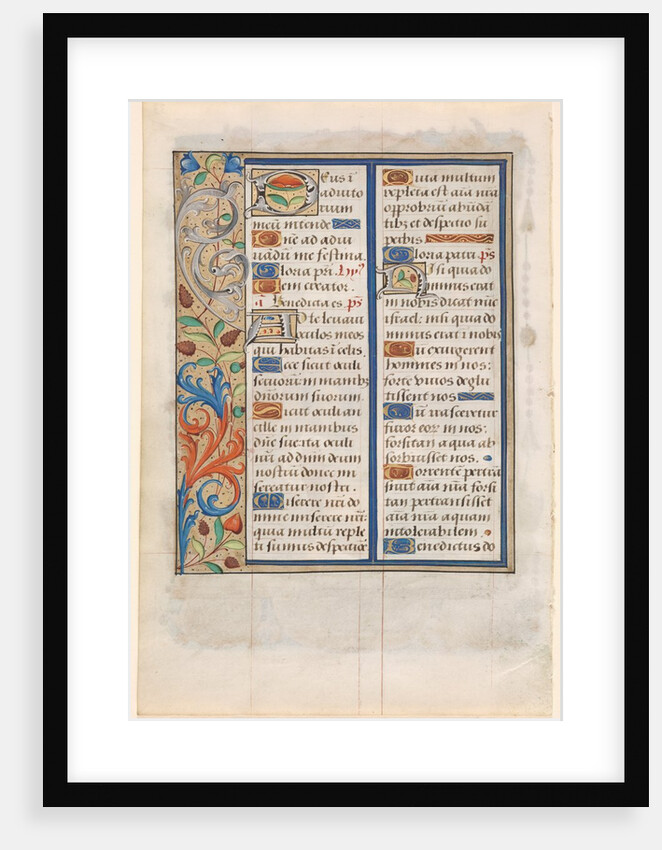 Deus ī
adiuto
rium
meū intende
Dn̄e ad adiu
uādū me festina.
Gloria pr̄i. hym̄⁹
Veni creator.
ā Benedicta es. ps̄
Ad te leuaui
oculos meos
qui habitas ī celis.
Ecce sicut oculi
seruorū: in manibꝫ
dn̄orum suorum
Sicut oculi an
cille in manibus
dn̄e sue: ita oculi
nr̄i ad dn̄m deum
nostrū donec mi
sereatur nostri.
Miserere nr̄i do
mine miserere nr̄i:
quia multū reple
ti sumus despectiōe
Quia multum
repleta est aīa nr̄a
opprobriū abūdā
tibꝫ et despectio su
perbis
Gloria patri ps̄
Nisi quia do
minus erat
in nobis dicat nūc
israel: nisi quia do
minus erat ī nobis
Cū exurgerent
hommes in nos:
forte viuos deglu
tissent nos
Cū irasceretur
furor eorꝝ in nos:
forsitan aqua ab
sorbuisset nos.
Torrentē pertrā
siuit aīa nr̄a: forsi
tan pertransisset
aīa nr̄a aquam
intolerabilem.
Benedictus do